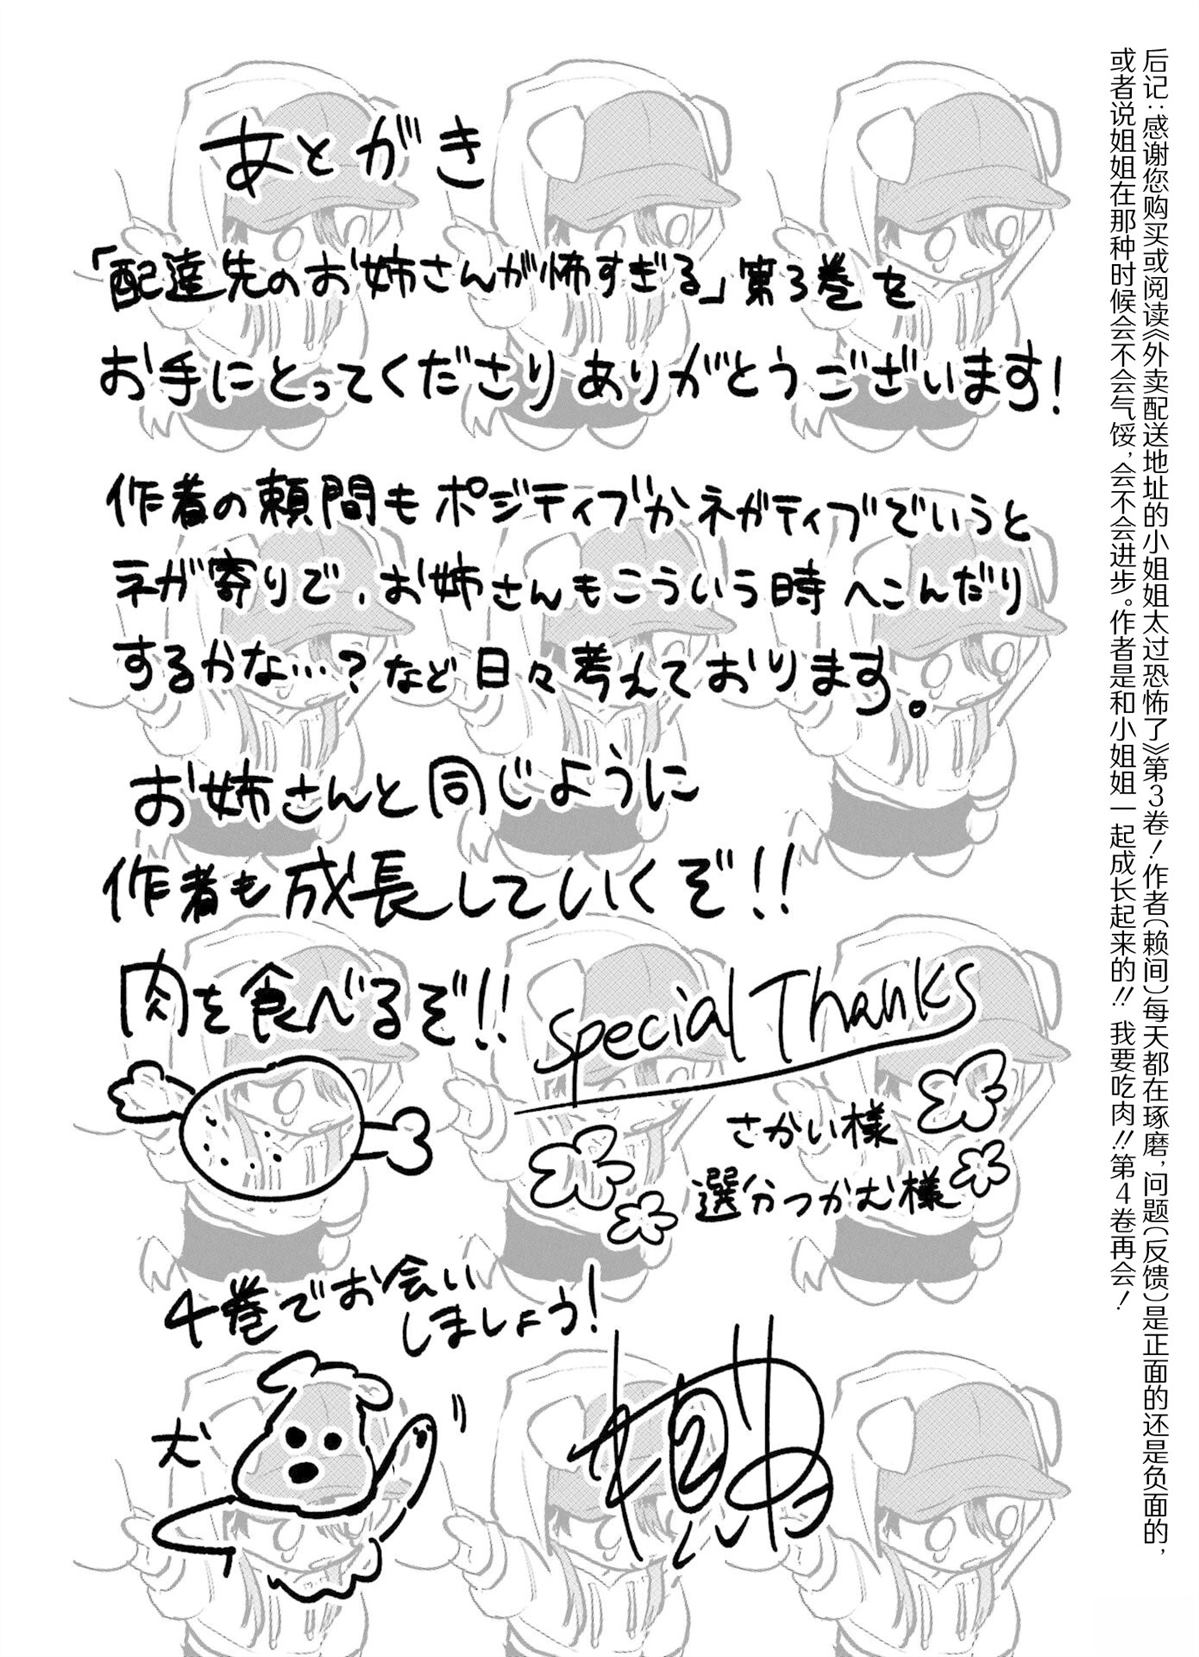 あとがき
「配達先のお姉さんが怖すぎる」第3巻を
お手にとってくださりありがとうございます！
作者の頼間もポジティブかネガティブでいうと
ネガ寄りで、お姉さんもこういう時へこんだり
するかな…？など日々考えております。
お姉さんと同じように
作者も成長していくぞ!!
肉を食べるぞ!!
Special Thanks
さかい様
選分つかむ様
4巻でお会い
しましょう！
犬
后记：感谢您购买或阅读《外卖配送地址的小姐姐太过恐怖了》第3卷！作者（赖间）每天都在琢磨，问题（反馈）是正面的还是负面的，
或者说姐姐在那种时候会不会气馁，会不会进步。作者是和小姐姐一起成长起来的!! 我要吃肉!!第4卷再会！